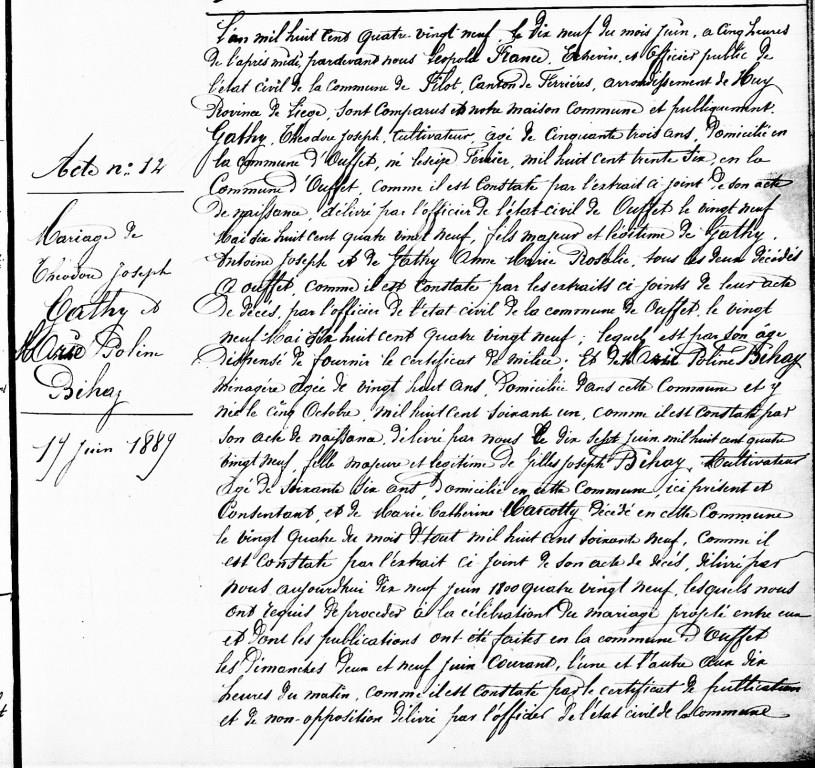 Acte n° 12
Mariage de
Théodore Joseph
Gathy et
Marie Poline
Bihay
19 juin 1889
L'an mil huit cent quatre-vingt neuf, le dix neuf du mois juin, a cinq heures
de l'après midi, pardevant nous Léopold France, Echevin, et Officier public de
l'état civil de la Commune de Filot, Canton de Ferrières, arrondissement de Huy
Province de Liége, sont Comparus et notre maison Commune et publiquement.
Gathy, Théodore Joseph, Cultivateur, agé de Cinquante trois ans, Domicilié en
la Commune d'Ouffet, né le seize Février, mil huit cent trente six, en la
Commune d'Ouffet, comme il est Constaté par l'extrait ci joint de son acte
de naissance, délivré par l'officier de l'état-civil de Ouffet le vingt neuf
Mai dix huit cent quatre vingt neuf, fils majeur et légitime de Gathy,
Antoine Joseph et de Gathy Anne Marie Rosalie, tous les deux décédés
a Ouffet, comme il est Constaté par les extraits ci-joints de leur acte
de décés, par l'officier de l'état civil de la commune de Ouffet, le vingt
neuf Mai dix huit cent quatre vingt neuf ; lequel est par son age
dispensé de fournir le certificat de milice ; Et de Marie Poline Bihay
ménagére agée de vingt huit ans, Domiciliée dans cette Commune et y
née le cinq Octobre mil huit cent soixante un, comme il est Constaté par
son acte de naissance, délivré par nous le dix sept juin mil huit cent quatre
vingt neuf, fille majeure et légitime de Gilles Joseph Bihay, Cultivateur
agé de soixante dix ans, Domicilié en cette Commune, ici présent et
Consentant, et de Marie Catherine Marcotty décédé en cette Commune
le vingt quatre du mois d'Aout mil huit cent soixante neuf, comme il
est Constaté par l'extrait ci joint de son acte de décés, délivré par
nous aujourdhui dix neuf juin 1800 quatre vingt neuf, lesquels nous
ont requis de procéder à la célébration du mariage projeté entre eux
et dont les publications ont été faites en la commune d'Ouffet
les Dimanches deux et neuf juin courant, l'une et l'autre aux dix
heures du matin, comme il est Constaté par le certificat de publication
et de non-opposition délivré par l'officier de l'état civil de la Commune